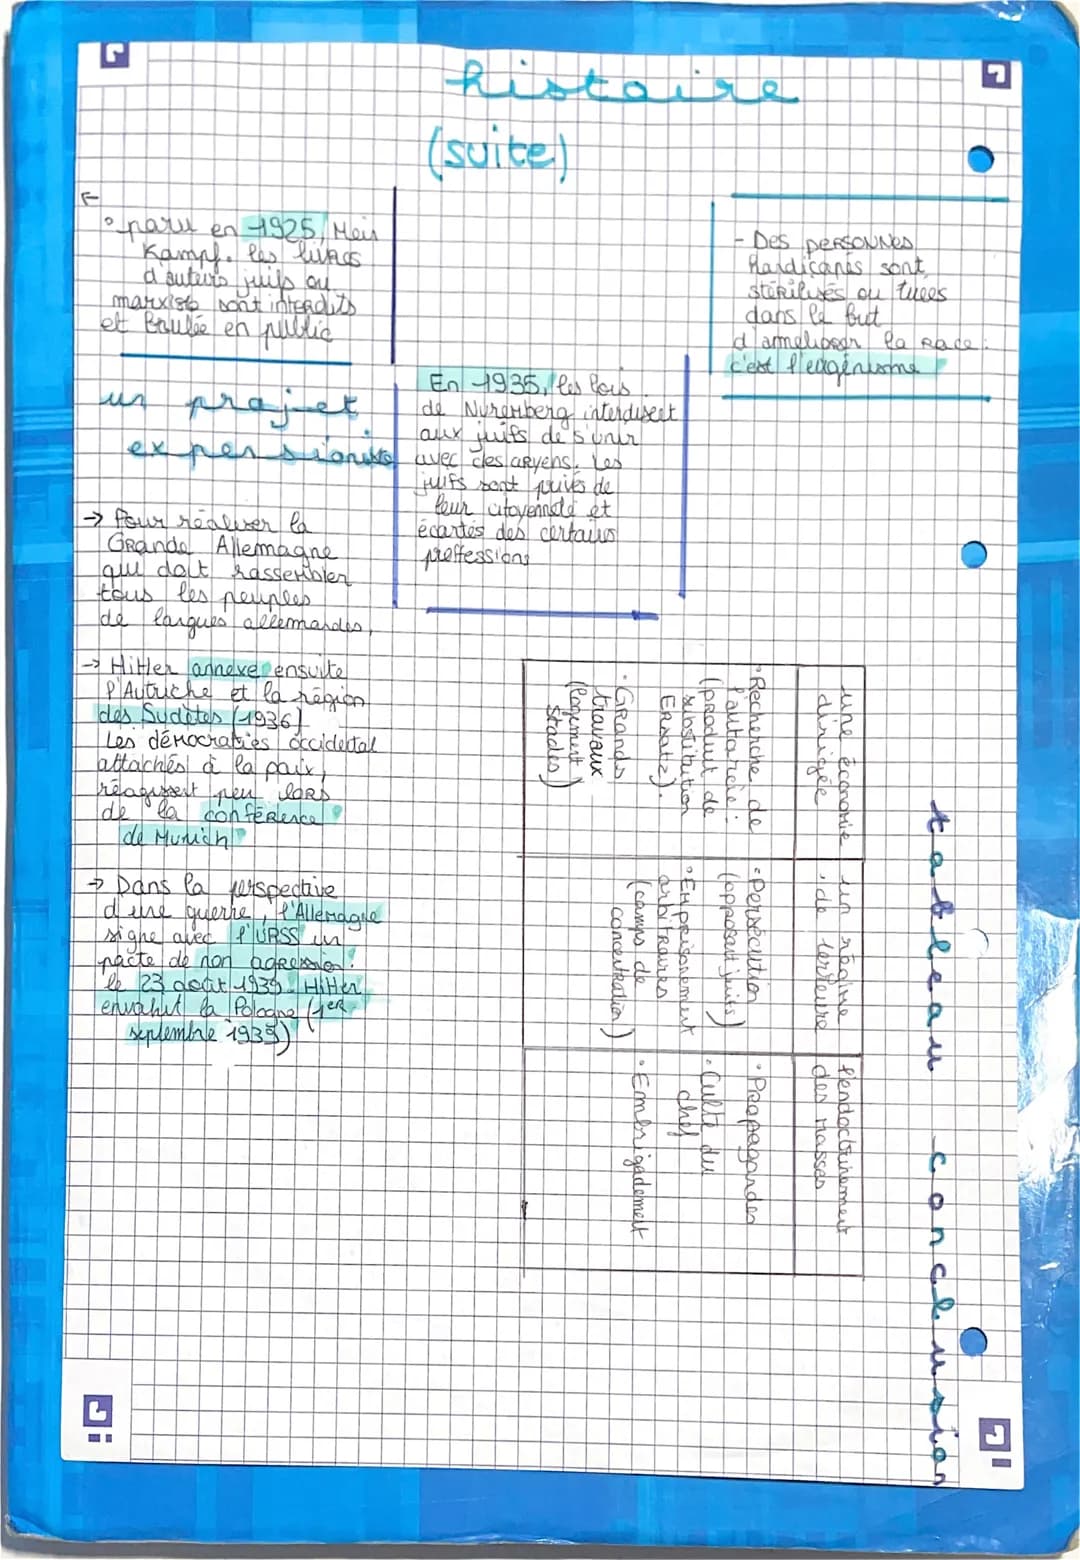 histoire
(suite)
° paru en 1925, Mein
Kampf. les livres
d'auteurs juifs ou
marxiste sont interdits
et Brulée en public
- Des personnes
Handicapés sont
stérilisés ou tuées
dans le but
d'ameliorer la Race :
c'est l'eugénisme
un projet
expensioniste
→ Pour réaliser la
Grande Allemagne
qui doit rassembler
tous les peuples
de langues allemandes,
→ Hitler annexe ensuite
l'Autriche et la région
des Sudètes (1936)
Les démocraties occidental
attachés à la paix,
réagissent peu lors
de la conférence
de Munich
→ Dans la perspective
d'une guerre, l'Allemagne
signe avec l'URSS un
pacte de non agression.
le 23 août 1939. Hitler
envahit la Pologne (1er
septembre 1939)
En 1935, les lois
de Nuremberg interdisent
aux juifs de s'unir
avec des aryens. Les
juifs sont privés de
leur citoyenneté et
écartés des certains
proffessions
tableau conclusion
une économie
dirigée
• Recherche de
l'autarcie :
(produit de
substitution
Ersatz).
• Grands
travaux
(logement
stades)
un régime
de terreure
• Persécution
(opposant juifs)
• Emprisonement
arbitraires
(camps de
concentration)
l'endoctrinement
des masses
• Propagandes
• Culte du
chef
• Embrigadement